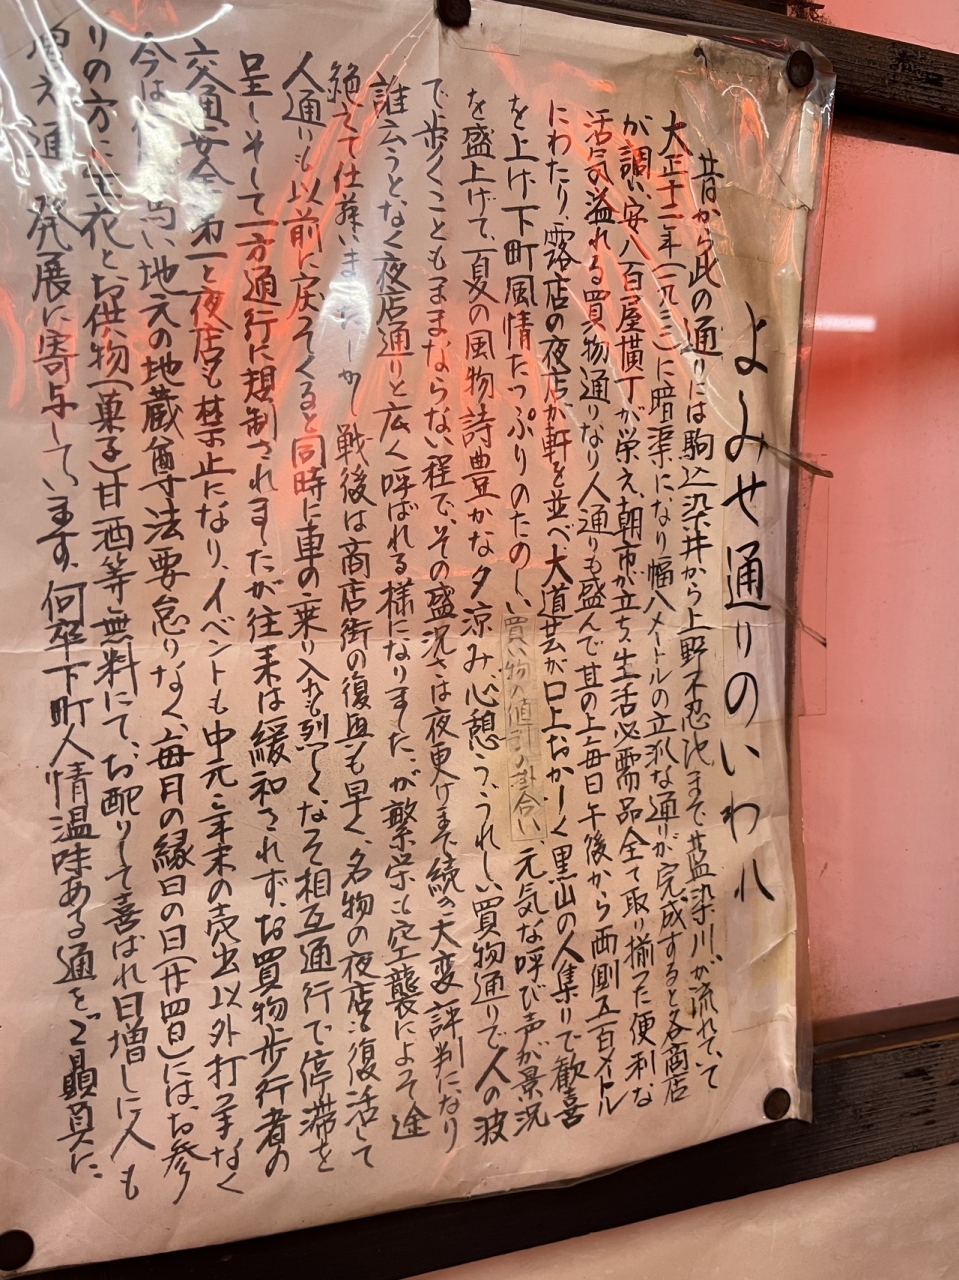 よみせ通りのいわれ
昔から此の通りには駒込染井から上野不忍池まで藍染川が流れて、て
大正十二年(一九二三)に暗渠になり幅八メートルの立派な通りが完成すると各商店
が調い安八百屋横丁が栄え、朝市が立ち、生活必需品全て取り揃った便利な
活気溢れる買物通りなり人通りも盛んで其の上毎日午後から両側五百メートル
にわたり、露店の夜店が軒を並べ大道芸が口上おかしく黒山の人集りで歓喜
を上げ下町風情たっぷりのたのしい買い物の値引の掛合い、元気な呼び声が景況
を盛上げて、夏の風物詩豊かな夕涼み、心憩う、うれしい買物通りで人の波
で歩くこともままならない程で、その盛況さは夜更けまで続き大変評判になり
誰云うとなく夜店通りと広く呼ばれる様になりました、が繁栄も空襲によって途
絶えて仕舞いましたしかし戦後は商店街の復興も早く、名物の夜店も復活して
人通りも以前に戻ってくると同時に車の乗り入れも烈しくなって相互通行で停滞を
呈しそして一方通行に規制されましたが往来は緩和されず、お買物歩行者の
交通安全第一と夜店も禁止になり、イベントも中元と年末の売出以外打つ手なく
今は 地元の地蔵尊寺法要怠りなく、毎月の縁日の日(廿四日)にはお参
りの方に生花とお供物(菓子)甘酒等無料にて、お配りして喜ばれ日増しに人も
増え通り発展に寄与しています、何卒下町人情温味ある通をご贔屓に